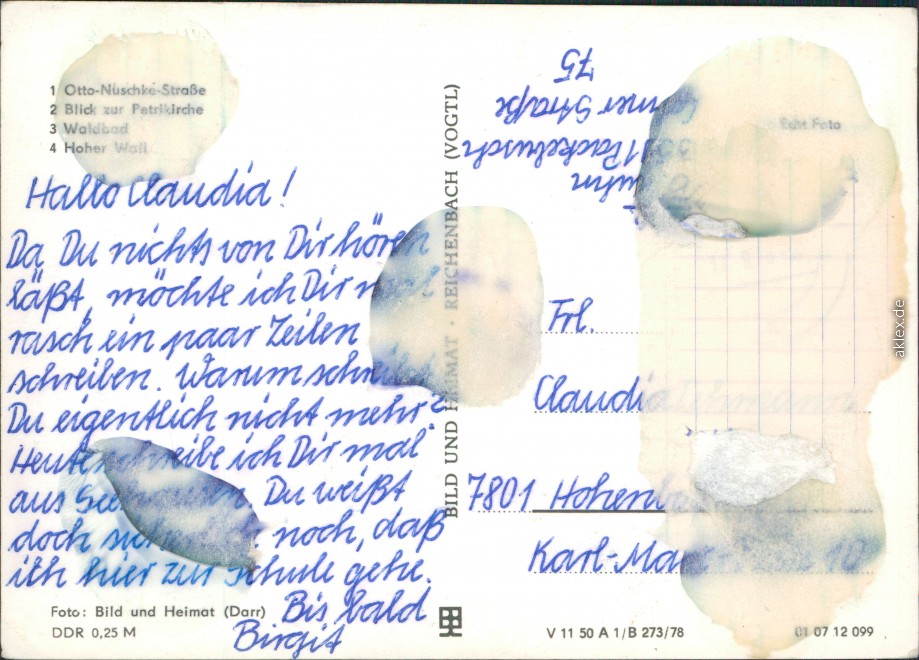 1 Otto-Nuschke-Straße
2 Blick zur Petrikirche
3 Waldbad
4 Hoher Wall
Hallo Claudia!
Da Du nichts von Dir hören
läßt, möchte ich Dir
rasch ein paar Zeilen
schreiben. Warum
Du eigentlich nicht mehr?
Heute schreibe ich Dir mal
aus Du weißt
doch noch, daß
ich hier zur Schule gehe.
Bis bald
Birgit
Foto: Bild und Heimat (Darr)
DDR 0,25 M
BILD UND HEIMAT · REICHENBACH (VOGTL)
Straße
75
Echt Foto
Frl.
Claudia
7801
Karl-
V 11 50 A 1/B 273/78
01 07 12 099
aklex.de